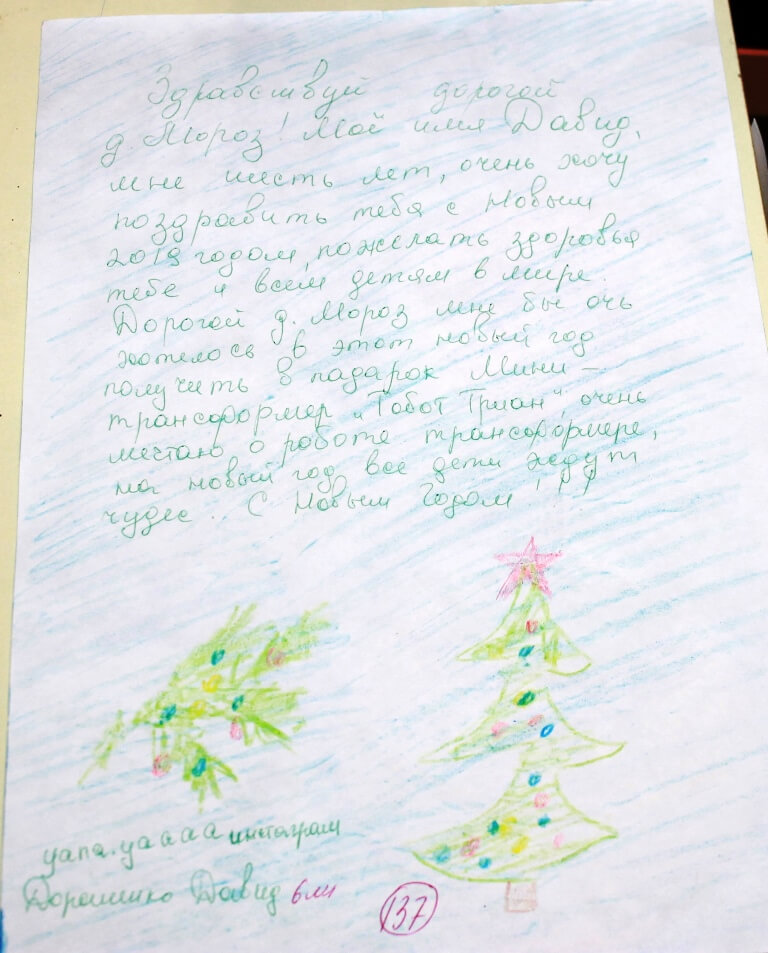 Здравствуй дорогой
д. Мороз! Моё имя Давид,
мне шесть лет, очень хочу
поздравить тебя с Новым
2019 годом, пожелать здоровья
тебе и всем детям в мире.
Дорогой д. Мороз мне бы очь
хотелось в этот новый год
получить в падарок Мини-
трансформер „Тобот Тритан", очень
мечтаю о роботе трансформере,
на новый год все дети ждут
чудес.. С Новым Годом!
yana.yaaaa инстаграм
Давид 6 ли
137